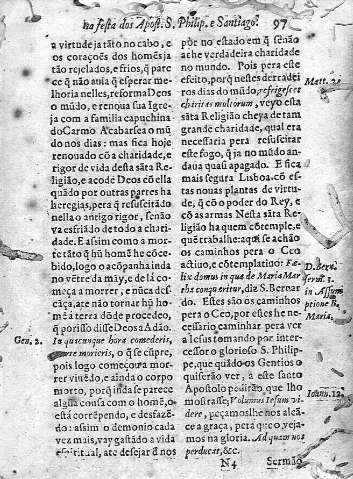 na festa dos Apost. S. Philip. e Santiago. 97
a virtude ja tāto no cabo, e
os corações dos homēs jà
tão rejelados, e frios, q̄ pare
ce q̄ não auia q̄ esperar me-
lhoria nelles, reforma Deos
o mūdo, e renoua sua Igre-
ja com a familia capuchina
do Carmo Acabarsea o mū
do nos dias: mas fica hoje
renouado cō a charidade, e
rigor de vida desta sāta Re
ligião, e acode Deos cō ella
quādo por outras partes ha
heregias, pera q̄ resuscitādo
nella o antigo rigor, senão
va esfriādo de todo a chari-
dade. E assim como a mor-
te tāto q̄ hū homē he cōce-
bido, logo o acōpanha inda
no vētre da mãy, e de là co-
meça a morrer, e nūca des-
cāça, ate não tornar hū ho-
mē à terra dōde procedeo,
q̄ por isso disse Deos a Adão.
Gen. 2. In quacunque hora comederis,
morte morieris, o q̄ se cūpre,
pois logo começou a mor-
rer viuēdo, e aīnda o corpo
morto, porq̄ inda se parece
algūa cousa com o homē, o
està corrēpendo, e desfazē-
do: assim o demonio cada
vez mais, vay gastādo a vida
espiritual, ate desejar d nos
pòr no estado em q̄ senão
ache verdadeira charidade
no mundo. Pois pera este
efeito, porq̄ nestes derradei
ros dias do mūdo, refrigescet Matt. 24
charitas multorum, veyo esta
sāta Religião cheya de tam
grande charidade, qual era
necessaria pera resuscitar
este fogo, q̄ ja no mūdo an-
daua quasi apagado. E fica
mais segura Lisboa. cō es-
tas nouas plantas de virtu-
de, q̄ cō o poder do Rey, e
cō as armas Nesta sāta Re-
ligião ha quem cōtemple, e
quē trabalhe: aqui se achão
os caminhos pera o Ceo
actiuo, e cōtemplatiuo: Fœ-
lix domus in qua de Maria Mar D. Bern.
tha conqueritur, diz S. Bernar
do. Estes são os caminhos in Assum
pera o Ceo, por estes he ne- ptione B.
cessario caminhar pera ver Maria.
a Iesus tomando por inter-
cessor o glorioso S. Philip-
pe, que quādo os Gentios o
quiserão ver, a este santo
Apostolo pedirão que lho
mostrasse; Volumus Iesum vi- Ioann. 12.
dere, peçamoslhe nos alcā-
ce a graça, pera que o veja-
mos na gloria. Ad quam nos
perducat, &c.
N4 Sermão